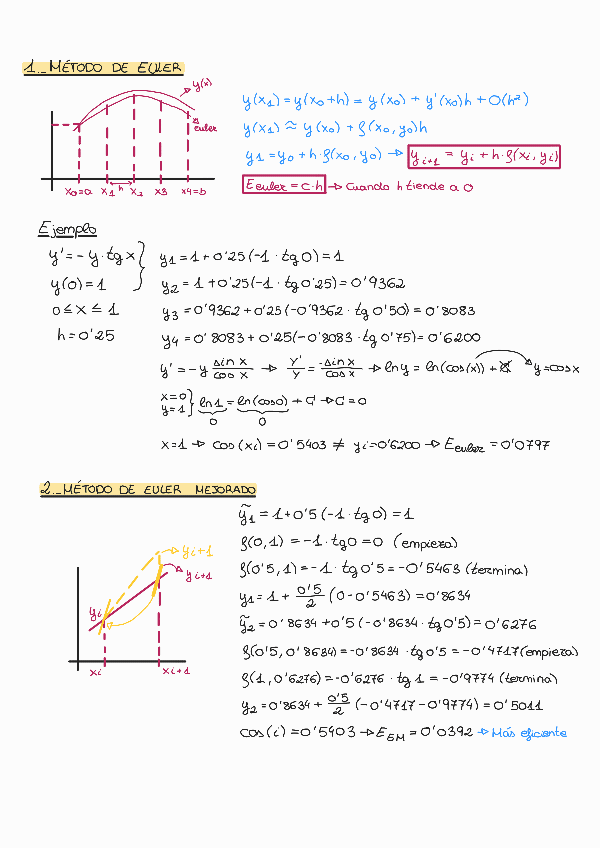 1._ MÉTODO DE EULER
y(x)
euler
x0=a x1 h x2 x3 x4=b
y(x1) = y(x0+h) = y(x0) + y'(x0)h + O(h²)
y(x1) ≈ y(x0) + f(x0, y0)h
y1 = y0 + h·f(x0, y0) → yi+1 = yi + h·f(xi, yi)
Eeuler = C·h → Cuando h tiende a 0
Ejemplo
y' = -y·tg x
y(0) = 1
0 ≤ x ≤ 1
h = 0'25
y1 = 1 + 0'25(-1 · tg 0) = 1
y2 = 1 + 0'25(-1 · tg 0'25) = 0'9362
y3 = 0'9362 + 0'25(-0'9362 · tg 0'50) = 0'8083
y4 = 0'8083 + 0'25(-0'8083 · tg 0'75) = 0'6200
y' = -y sin x / cos x → y'/y = -sin x / cos x → ln y = ln(cos(x)) + C y = cos x
x=0
y=1 } ln 1 = ln(cos 0) + C → C = 0
0 0
x=1 → cos(xi) = 0'5403 ≠ yi = 0'6200 → Eeuler = 0'0797
2._ MÉTODO DE EULER MEJORADO
yi+1
yi+1
yi
xi xi+1
ỹ1 = 1 + 0'5(-1 · tg 0) = 1
f(0,1) = -1 · tg 0 = 0 (empieza)
f(0'5, 1) = -1 · tg 0'5 = -0'5463 (termina)
y1 = 1 + 0'5/2 (0 - 0'5463) = 0'8634
ỹ2 = 0'8634 + 0'5(-0'8634 · tg 0'5) = 0'6276
f(0'5, 0'8634) = -0'8634 · tg 0'5 = -0'4717 (empieza)
f(1, 0'6276) = -0'6276 · tg 1 = -0'9774 (termina)
y2 = 0'8634 + 0'5/2 (-0'4717 - 0'9774) = 0'5011
cos(i) = 0'5403 → EEM = 0'0392 → Más eficiente